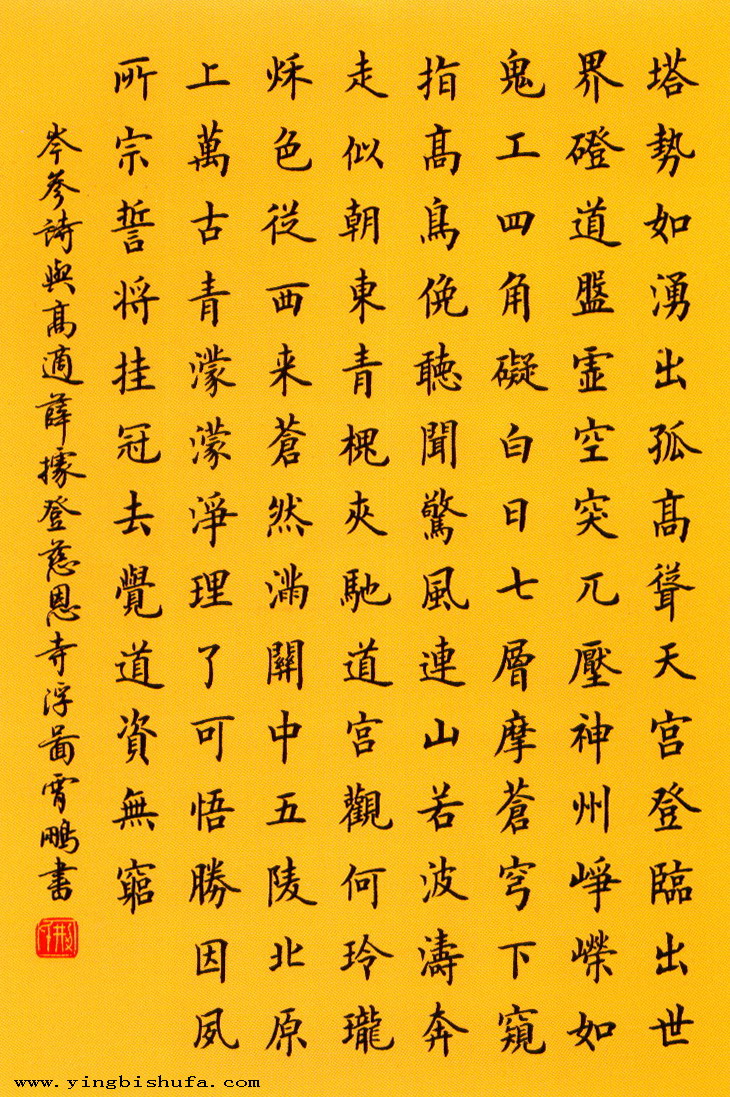 塔勢如湧出孤髙聳天宫登臨出世
界磴道盤虚空突兀壓神州崢嶸如
鬼工四角礙白日七層摩蒼穹下窺
指髙鳥俛聽聞驚風連山若波濤奔
走似朝東青槐夾馳道宫觀何玲瓏
秌色從西来蒼然滿關中五陵北原
上萬古青濛濛淨理了可悟勝因夙
所宗誓将挂冠去覺道資無窮
岑參詩與髙適薛據登慈恩寺浮啚霄鵬書
www.yingbishufa.com